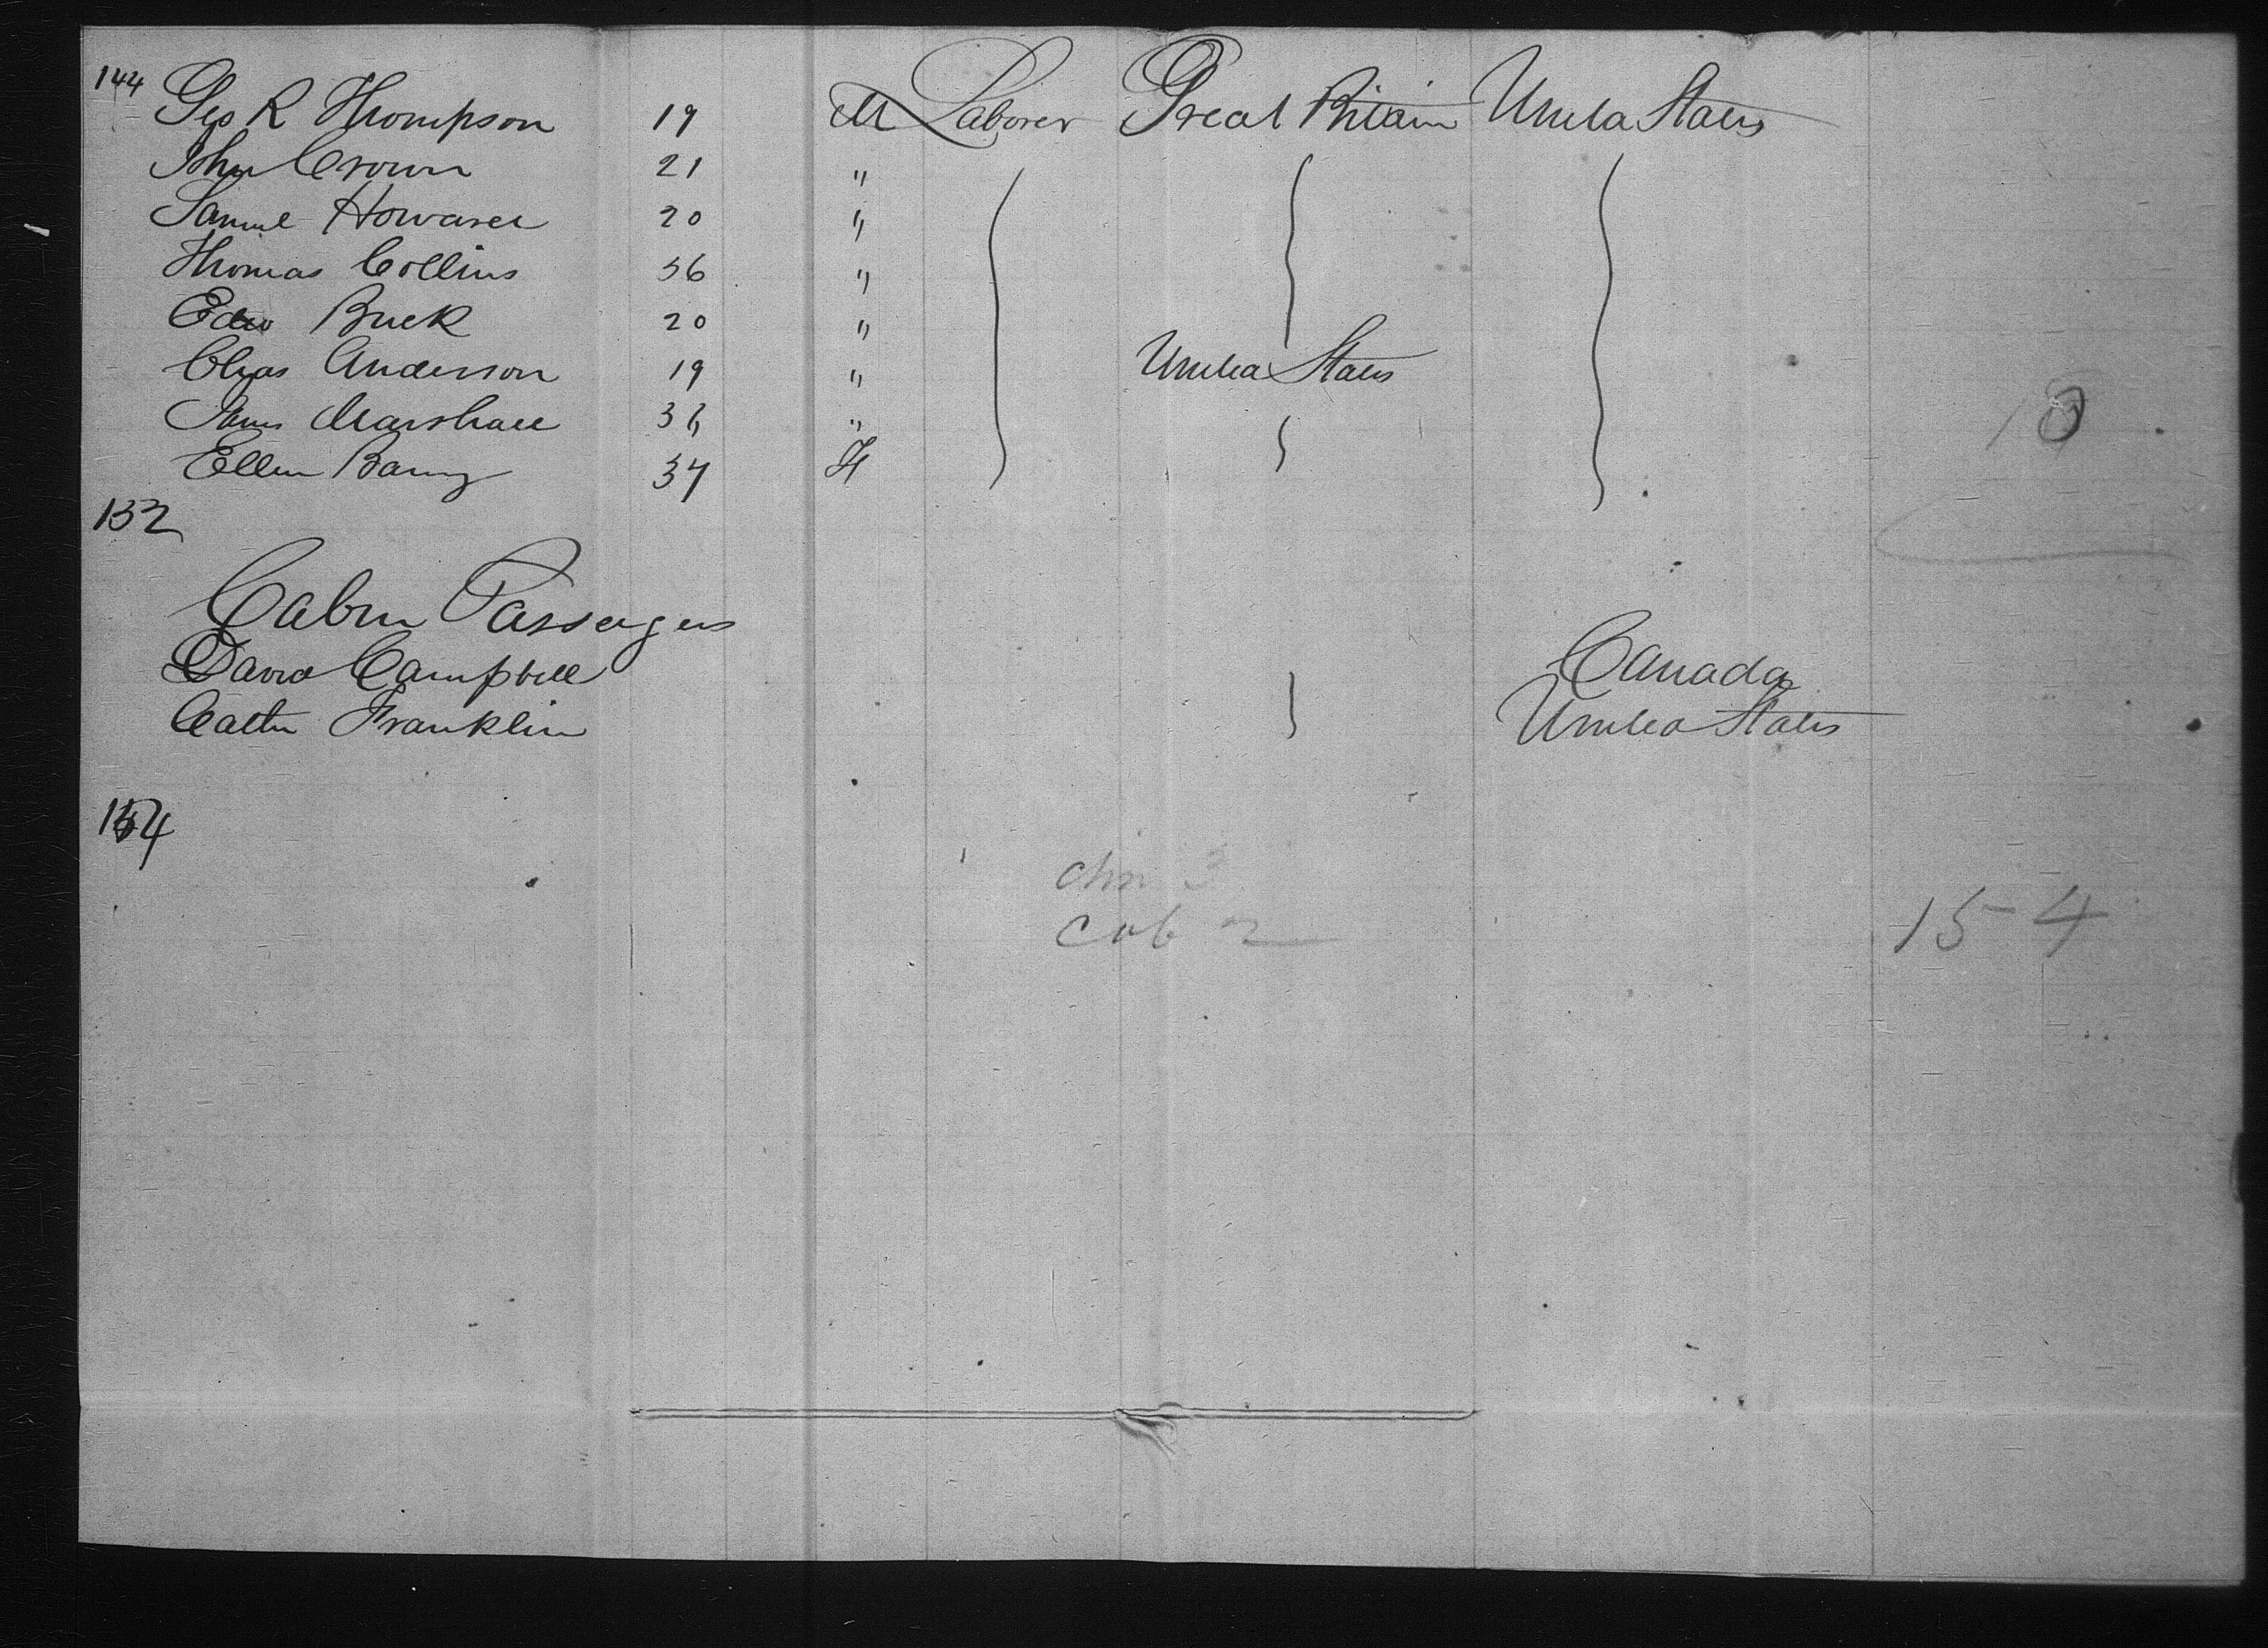 144 Geo R Thompson 19 M Laborer Great Britain United States
John Crown 21 "
Samuel Howard 20 "
Thomas Collins 36 "
Edw Buck 20 "
Chas Anderson 19 " United States
James Marshall 36 "
Ellen Barry 37 F
10
152
Cabin Passengers
David Campbell Canada
Cathn Franklin United States
154
chn 3
cab 2
154